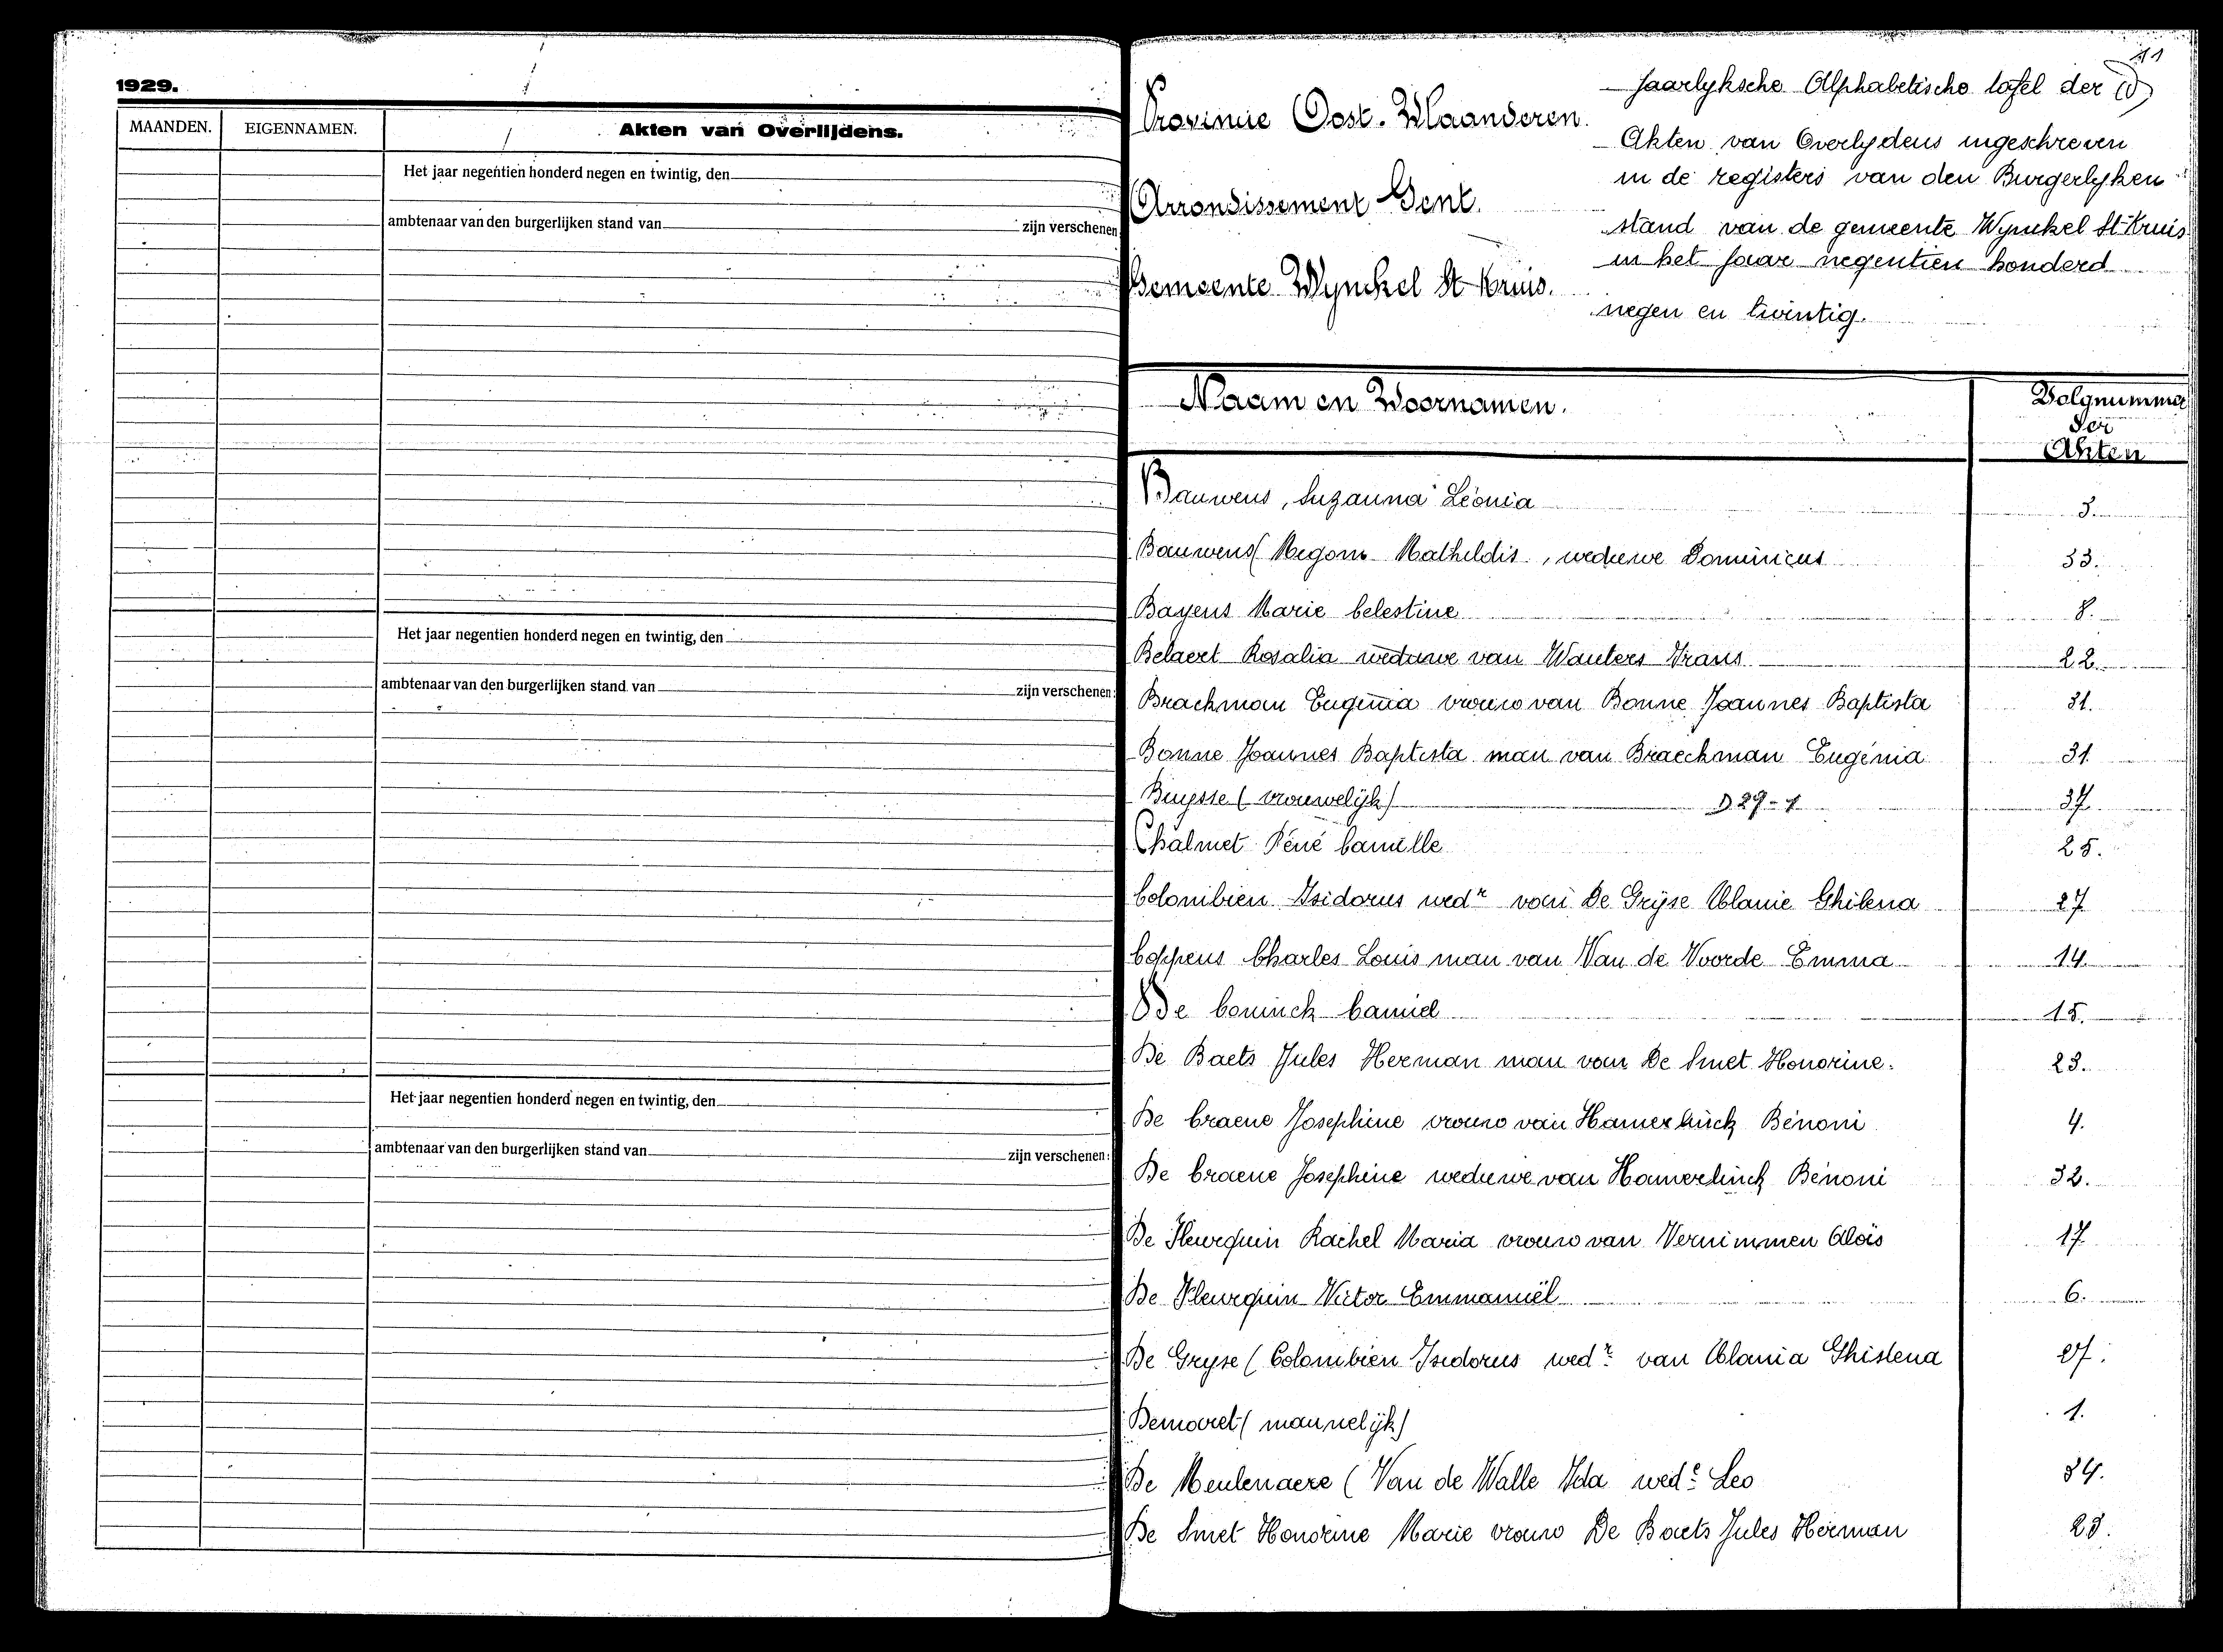 1929.
MAANDEN. EIGENNAMEN. Akten van Overlijdens.
Het jaar negentien honderd negen en twintig, den
ambtenaar van den burgerlijken stand van zijn verschenen
Het jaar negentien honderd negen en twintig, den
ambtenaar van den burgerlijken stand van zijn verschenen:
Het jaar negentien honderd negen en twintig, den
ambtenaar van den burgerlijken stand van zijn verschenen:
Provincie Oost-Vlaanderen.
Arrondissement Gent.
Gemeente Wynckel St Kruis.
Jaarlyksche Alphabetische tafel der
Akten van Overlydens ingeschreven
in de registers van den Burgerlyken
stand van de gemeente Wynckel St Kruis
in het jaar negentien honderd
negen en twintig.
Naam en Voornamen. Volgnummer
der
Akten
Bauwens, Suzanna Léonia 3.
Bauwens (Megom Mathildis, weduwe Dominicus 33.
Bayens Marie Celestine 8.
Belaert Rosalia weduwe van Wauters Frans 22.
Brachman Eugenia vrouw van Bonne Joannes Baptista 31.
Bonne Joannes Baptista man van Braeckman Eugénia 31.
Buysse (vrouwelijk) D 29-7 37.
Chalmet Réné Camille 25.
Colombien Isidorus wedr van De Gryse Ghilena 27
Coppens Charles Louis man van Van de Voorde Emma 14
De Coninck Camiel 15.
De Baets Jules Herman man van De Smet Honorine. 23.
De Craene Josephine vrouw van Hamerlinck Bénoni 4.
De Craene Josephine weduwe van Hamerlinck Bénoni 32.
De Fleurquin Rachel Maria vrouw van Vernimmen Aloïs 17
De Fleurquin Victor Emmanuël 6.
De Gryse (Colombien Isidorus wedr van Ghislena 27.
Demoret (mannelijk) 1.
De Meulenaere (Van de Walle Ida wede Leo 34.
De Smet Honorine Marie vrouw De Baets Jules Herman 23.